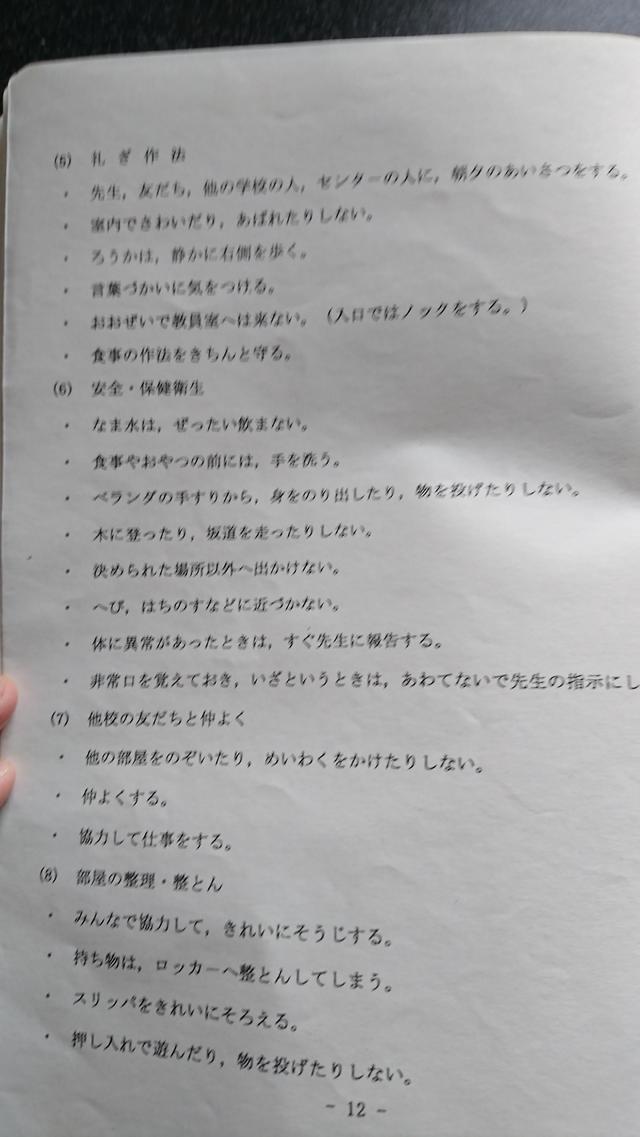 (5) 礼ぎ作法
・ 先生，友だち，他の学校の人，センターの人に，朝夕のあいさつをする。
・ 室内でさわいだり，あばれたりしない。
・ ろうかは，静かに右側を歩く。
・ 言葉づかいに気をつける。
・ おおぜいで教員室へは来ない。（入口ではノックをする。）
・ 食事の作法をきちんと守る。
(6) 安全・保健衛生
・ なま水は，ぜったい飲まない。
・ 食事やおやつの前には，手を洗う。
・ ベランダの手すりから，身をのり出したり，物を投げたりしない。
・ 木に登ったり，坂道を走ったりしない。
・ 決められた場所以外へ出かけない。
・ へび，はちのすなどに近づかない。
・ 体に異常があったときは，すぐ先生に報告する。
・ 非常口を覚えておき，いざというときは，あわてないで先生の指示にし
(7) 他校の友だちと仲よく
・ 他の部屋をのぞいたり，めいわくをかけたりしない。
・ 仲よくする。
・ 協力して仕事をする。
(8) 部屋の整理・整とん
・ みんなで協力して，きれいにそうじする。
・ 持ち物は，ロッカーへ整とんしてしまう。
・ スリッパをきれいにそろえる。
・ 押し入れで遊んだり，物を投げたりしない。
- 12 -